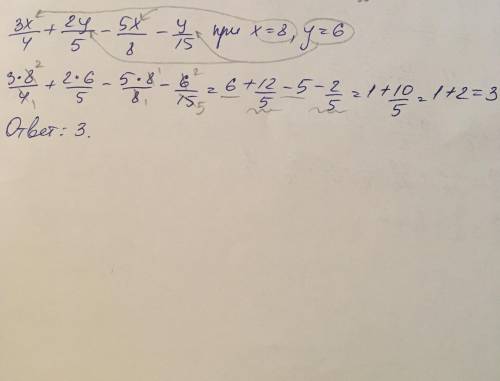 3x/4 + 2y/5 - 5x/8 - y/15 при x=8, y=6
3·8²/4₁ + 2·6/5 - 5·8¹/8₁ - 6²/15₅ = 6 + 12/5 - 5 - 2/5 = 1 + 10/5 = 1+2=3
Ответ: 3.